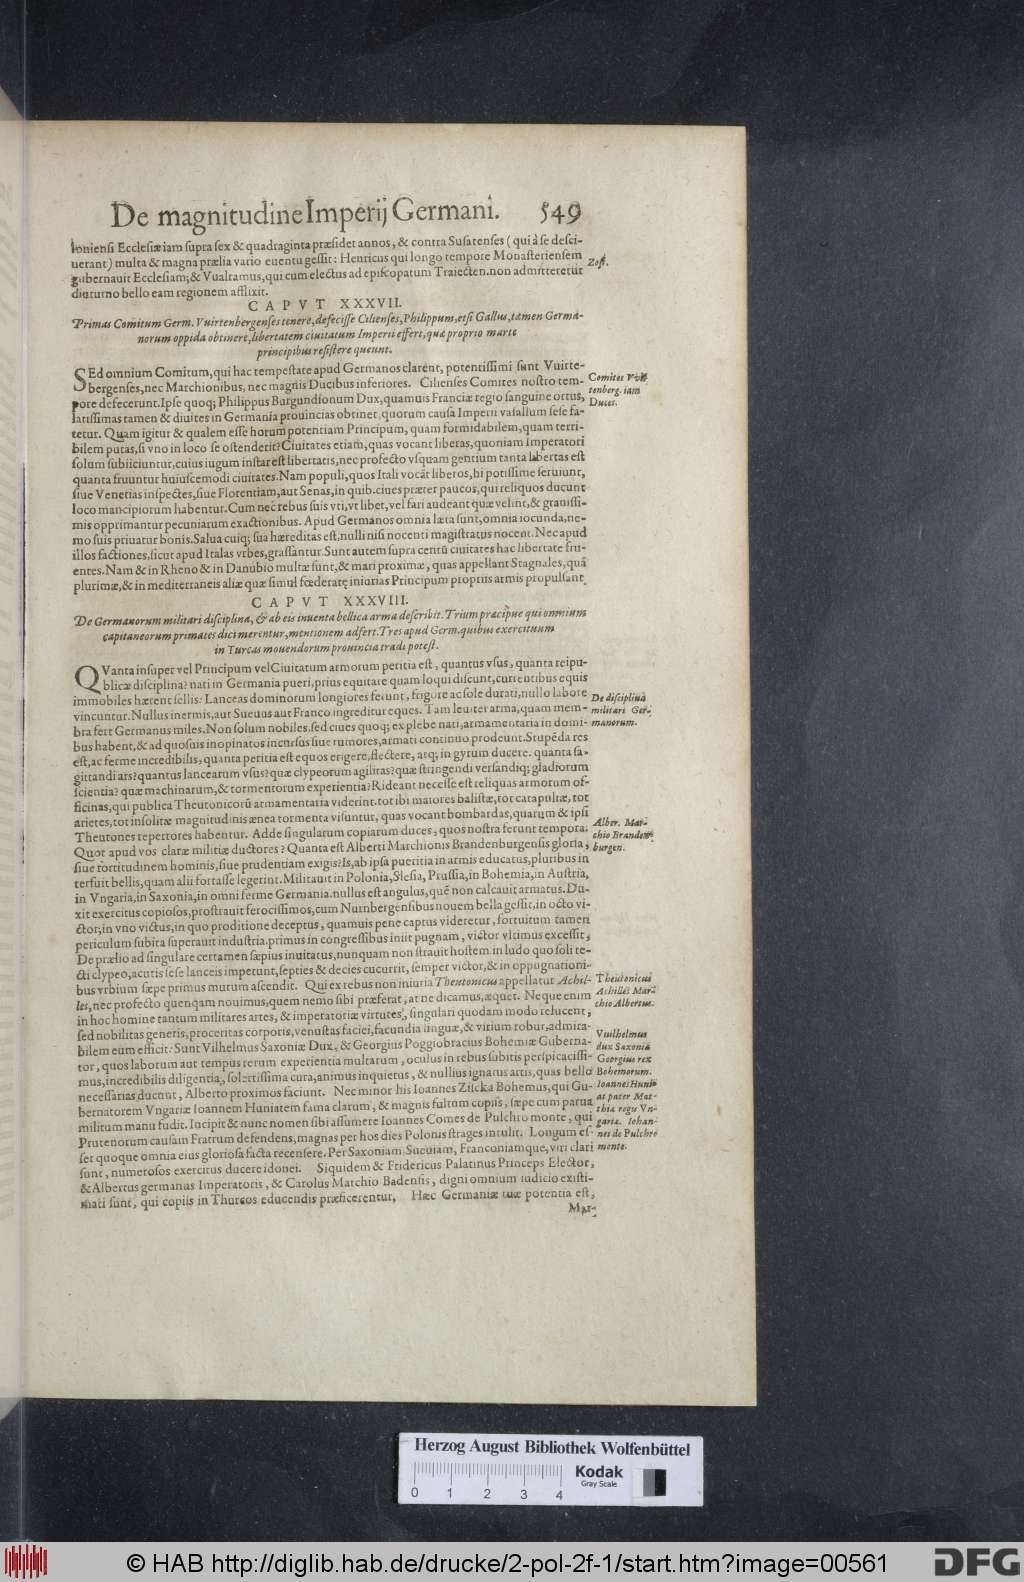 De magnitudine Imperij Germani. 549
loniensi Ecclesiæ iam supra sex & quadraginta præsidet annos, & contra Susatenses (qui à se desci-
uerant) multa & magna prælia vario euentu gessit: Henricus qui longo tempore Monasteriensem
gubernauit Ecclesiam; & Vualramus, qui cum electus ad episcopatum Traiecten. non admitteretur
diuturno bello eam regionem afflixit.
Zost.
CAPVT XXXVII.
Primas Comitum Germ. Vuirtenbergenses tenere, defecisse Cilienses, Philippum, etsi Gallus, tamen Germa-
norum oppida obtinere, libertatem ciuitatum Imperii effert, quæ proprio marte
principibus resistere queunt.
SEd omnium Comitum, qui hac tempestate apud Germanos clarent, potentissimi sunt Vuirte-
bergenses, nec Marchionibus, nec magnis Ducibus inferiores. Cilienses Comites nostro tem-
pore defecerunt. Ipse quoq; Philippus Burgundionum Dux, quamuis Franciæ regio sanguine ortus,
latissimas tamen & diuites in Germania prouincias obtinet, quorum causa Imperii vasallum sese fa-
tetur. Quam igitur & qualem esse horum potentiam Principum, quam formidabilem, quam terri-
bilem putas, si vno in loco se ostenderit? Ciuitates etiam, quas vocant liberas, quoniam Imperatori
solum subiiciuntur, cuius iugum instar est libertatis, nec profecto vsquam gentium tanta libertas est
quanta fruuntur huiuscemodi ciuitates. Nam populi, quos Itali vocāt liberos, hi potissime seruiunt,
siue Venetias inspectes, siue Florentiam, aut Senas, in quib. ciues præter paucos, qui reliquos ducunt
loco mancipiorum habentur. Cum nec rebus suis vti, vt libet, vel fari audeant quæ velint, & grauissi-
mis opprimantur pecuniarum exactionibus. Apud Germanos omnia læta sunt, omnia iocunda, ne-
mo suis priuatur bonis. Salua cuiq; sua hæreditas est, nulli nisi nocenti magistratus nocent. Nec apud
illos factiones, sicut apud Italas vrbes, grassantur. Sunt autem supra centū ciuitates hac libertate fru-
entes. Nam & in Rheno & in Danubio multæ sunt, & mari proximæ, quas appellant Stagnales, quā
plurimæ, & in mediterraneis aliæ quæ simul fœderatę iniurias Principum propriis armis propulsant
Comites Vuir-
tenberg. iam
Duces.
CAPVT XXXVIII.
De Germanorum militari disciplina, & ab eis inuenta bellica arma describit. Trium præcipue qui omnium
capitaneorum primates dici merentur, mentionem adfert. Tres apud Germ. quibus exercituum
in Turcas mouendorum prouincia tradi potest.
QVanta insuper vel Principum vel Ciuitatum armorum peritia est, quantus vsus, quanta reipu-
blicæ disciplina? nati in Germania pueri, prius equitare quam loqui discunt, currentibus equis
immobiles hærent sellis: Lanceas dominorum longiores ferunt, frigore ac sole durati, nullo labore
vincuntur. Nullus inermis, aut Sueuus aut Franco ingreditur eques. Tam leuiter arma, quam mem-
bra fert Germanus miles. Non solum nobiles, sed ciues quoq; ex plebe nati, armamentaria in domi-
bus habent, & ad quosuis inopinatos incursus siue rumores, armati continuo prodeunt. Stupēda res
est, ac ferme incredibilis, quanta peritia est equos erigere, flectere, atq; in gyrum ducere. quanta sa-
gittandi ars? quantus lancearum vsus? quæ clypeorum agilitas? quæ stringendi versandiq; gladiorum
scientia? quæ machinarum, & tormentorum experientia? Rideant necesse est reliquas armorum of-
ficinas, qui publica Theutonicorū armamentaria viderint. tot ibi maiores balistæ, tot catapultæ, tot
arietes, tot insolitæ magnitudinis ænea tormenta visuntur, quas vocant bombardas, quarum & ipsi
Theutones repertores habentur. Adde singularum copiarum duces, quos nostra ferunt tempora.
Quot apud vos claræ militiæ ductores? Quanta est Alberti Marchionis Brandenburgensis gloria,
siue fortitudinem hominis, siue prudentiam exigis? Is, ab ipsa pueritia in armis educatus, pluribus in
terfuit bellis, quam alii fortasse legerint. Militauit in Polonia, Slesia, Prussia, in Bohemia, in Austria,
in Vngaria, in Saxonia, in omni ferme Germania. nullus est angulus, quē non calcauit armatus. Du-
xit exercitus copiosos, prostrauit ferocissimos, cum Nurnbergensibus nouem bella gessit, in octo vi-
ctor, in vno victus, in quo proditione deceptus, quamuis pene captus videretur, fortuitum tamen
periculum subita superauit industria. primus in congressibus iniit pugnam, victor vltimus excessit,
De prælio ad singulare certamen sæpius inuitatus, nunquam non strauit hostem. in ludo quo soli te-
cti clypeo, acutis sese lanceis impetunt, septies & decies cucurrit, semper victor, & in oppugnationi-
bus vrbium sæpe primus murum ascendit. Qui ex rebus non iniuria Theutonicus appellatur Achil-
les, nec profecto quenqam nouimus, quem nemo sibi præferat, at ne dicamus, æquet. Neque enim
in hoc homine tantum militares artes, & imperatoriæ virtutes, singulari quodam modo relucent,
sed nobilitas generis, proceritas corporis, venustas faciei, facundia linguæ, & virium robur, admira-
bilem eum efficit. Sunt Vilhelmus Saxoniæ Dux, & Georgius Poggiobracius Bohemiæ Guberna-
tor, quos laborum aut tempus rerum experientia multarum, oculus in rebus subitis perspicacissi-
mus, incredibilis diligentia, solertissima cura, animus inquietus, & nullius ignarus artis, quas bello
necessarias ducunt, Alberto proximos faciunt. Nec minor his Ioannes Zischka Bohemus, qui Gu-
bernatorem Vngariæ Ioannem Huniatem fama clarum, & magnis fultum copiis, sæpe cum parua
militum manu fudit. Incipit & nunc nomen sibi assumere Ioannes Comes de Pulchro monte, qui
Prutenorum causam Fratrum defendens, magnas per hos dies Polonis strages intulit. Longum es-
set quoque omnia eius gloriosa facta recensere. Per Saxoniam, Sueuiam, Franconiamque, viri clari
sunt, numerosos exercitus ducere idonei. Siquidem & Fridericus Palatinus Princeps Elector,
& Albertus germanus Imperatoris, & Carolus Marchio Badensis, digni omnium iudicio existi-
mati sunt, qui copiis in Thurcos educendis præficerentur, Hæc Germaniæ tuæ potentia est,
Mar-
De disciplina
militari Ger-
manorum.
Alber. Mar-
chio Branden-
burgen.
Theutonicus
Achilles Mar-
chio Albertus.
Vuilhelmus
dux Saxoniæ
Georgius rex
Bohemorum.
Ioannes Huni-
at pater Mat-
thiæ regis Vn-
gariæ. Iohan-
nes de Pulchro
monte.
Herzog August Bibliothek Wolfenbüttel
0 1 2 3 4
Kodak
Gray Scale
© HAB http://diglib.hab.de/drucke/2-pol-2f-1/start.htm?image=00561
DFG